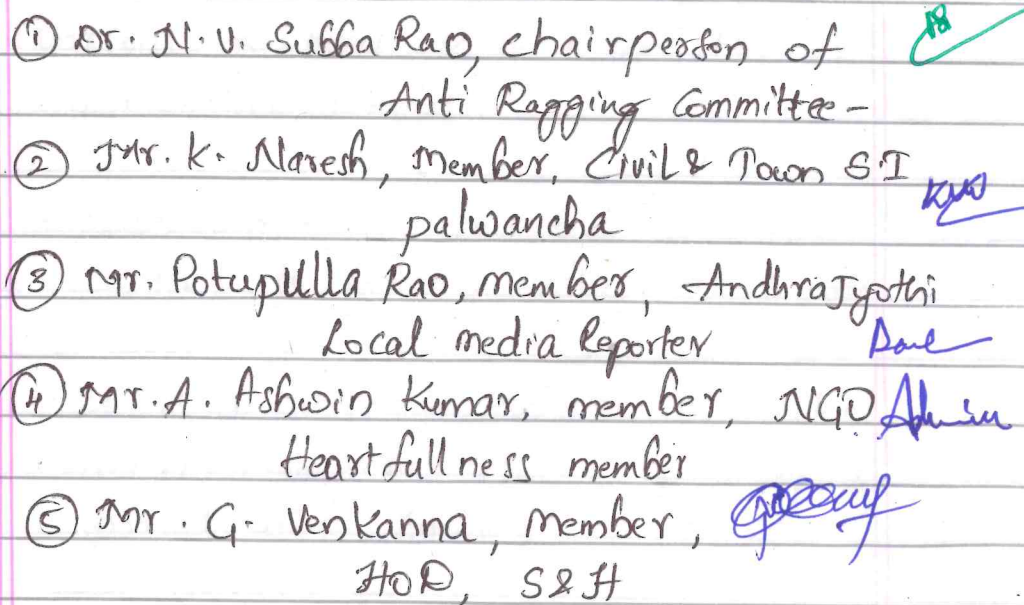 ① Dr. N.V. Subba Rao, chairperson of
Anti Ragging Committee -
② Mr. K. Naresh, Member, Civil & Town S.I
palwancha
③ Mr. Potupulla Rao, member, AndhraJyothi
Local media Reporter
④ Mr. A. Ashwin Kumar, member, NGO
Heartfullness member
⑤ Mr. G. Venkanna, member,
HOD, S&H